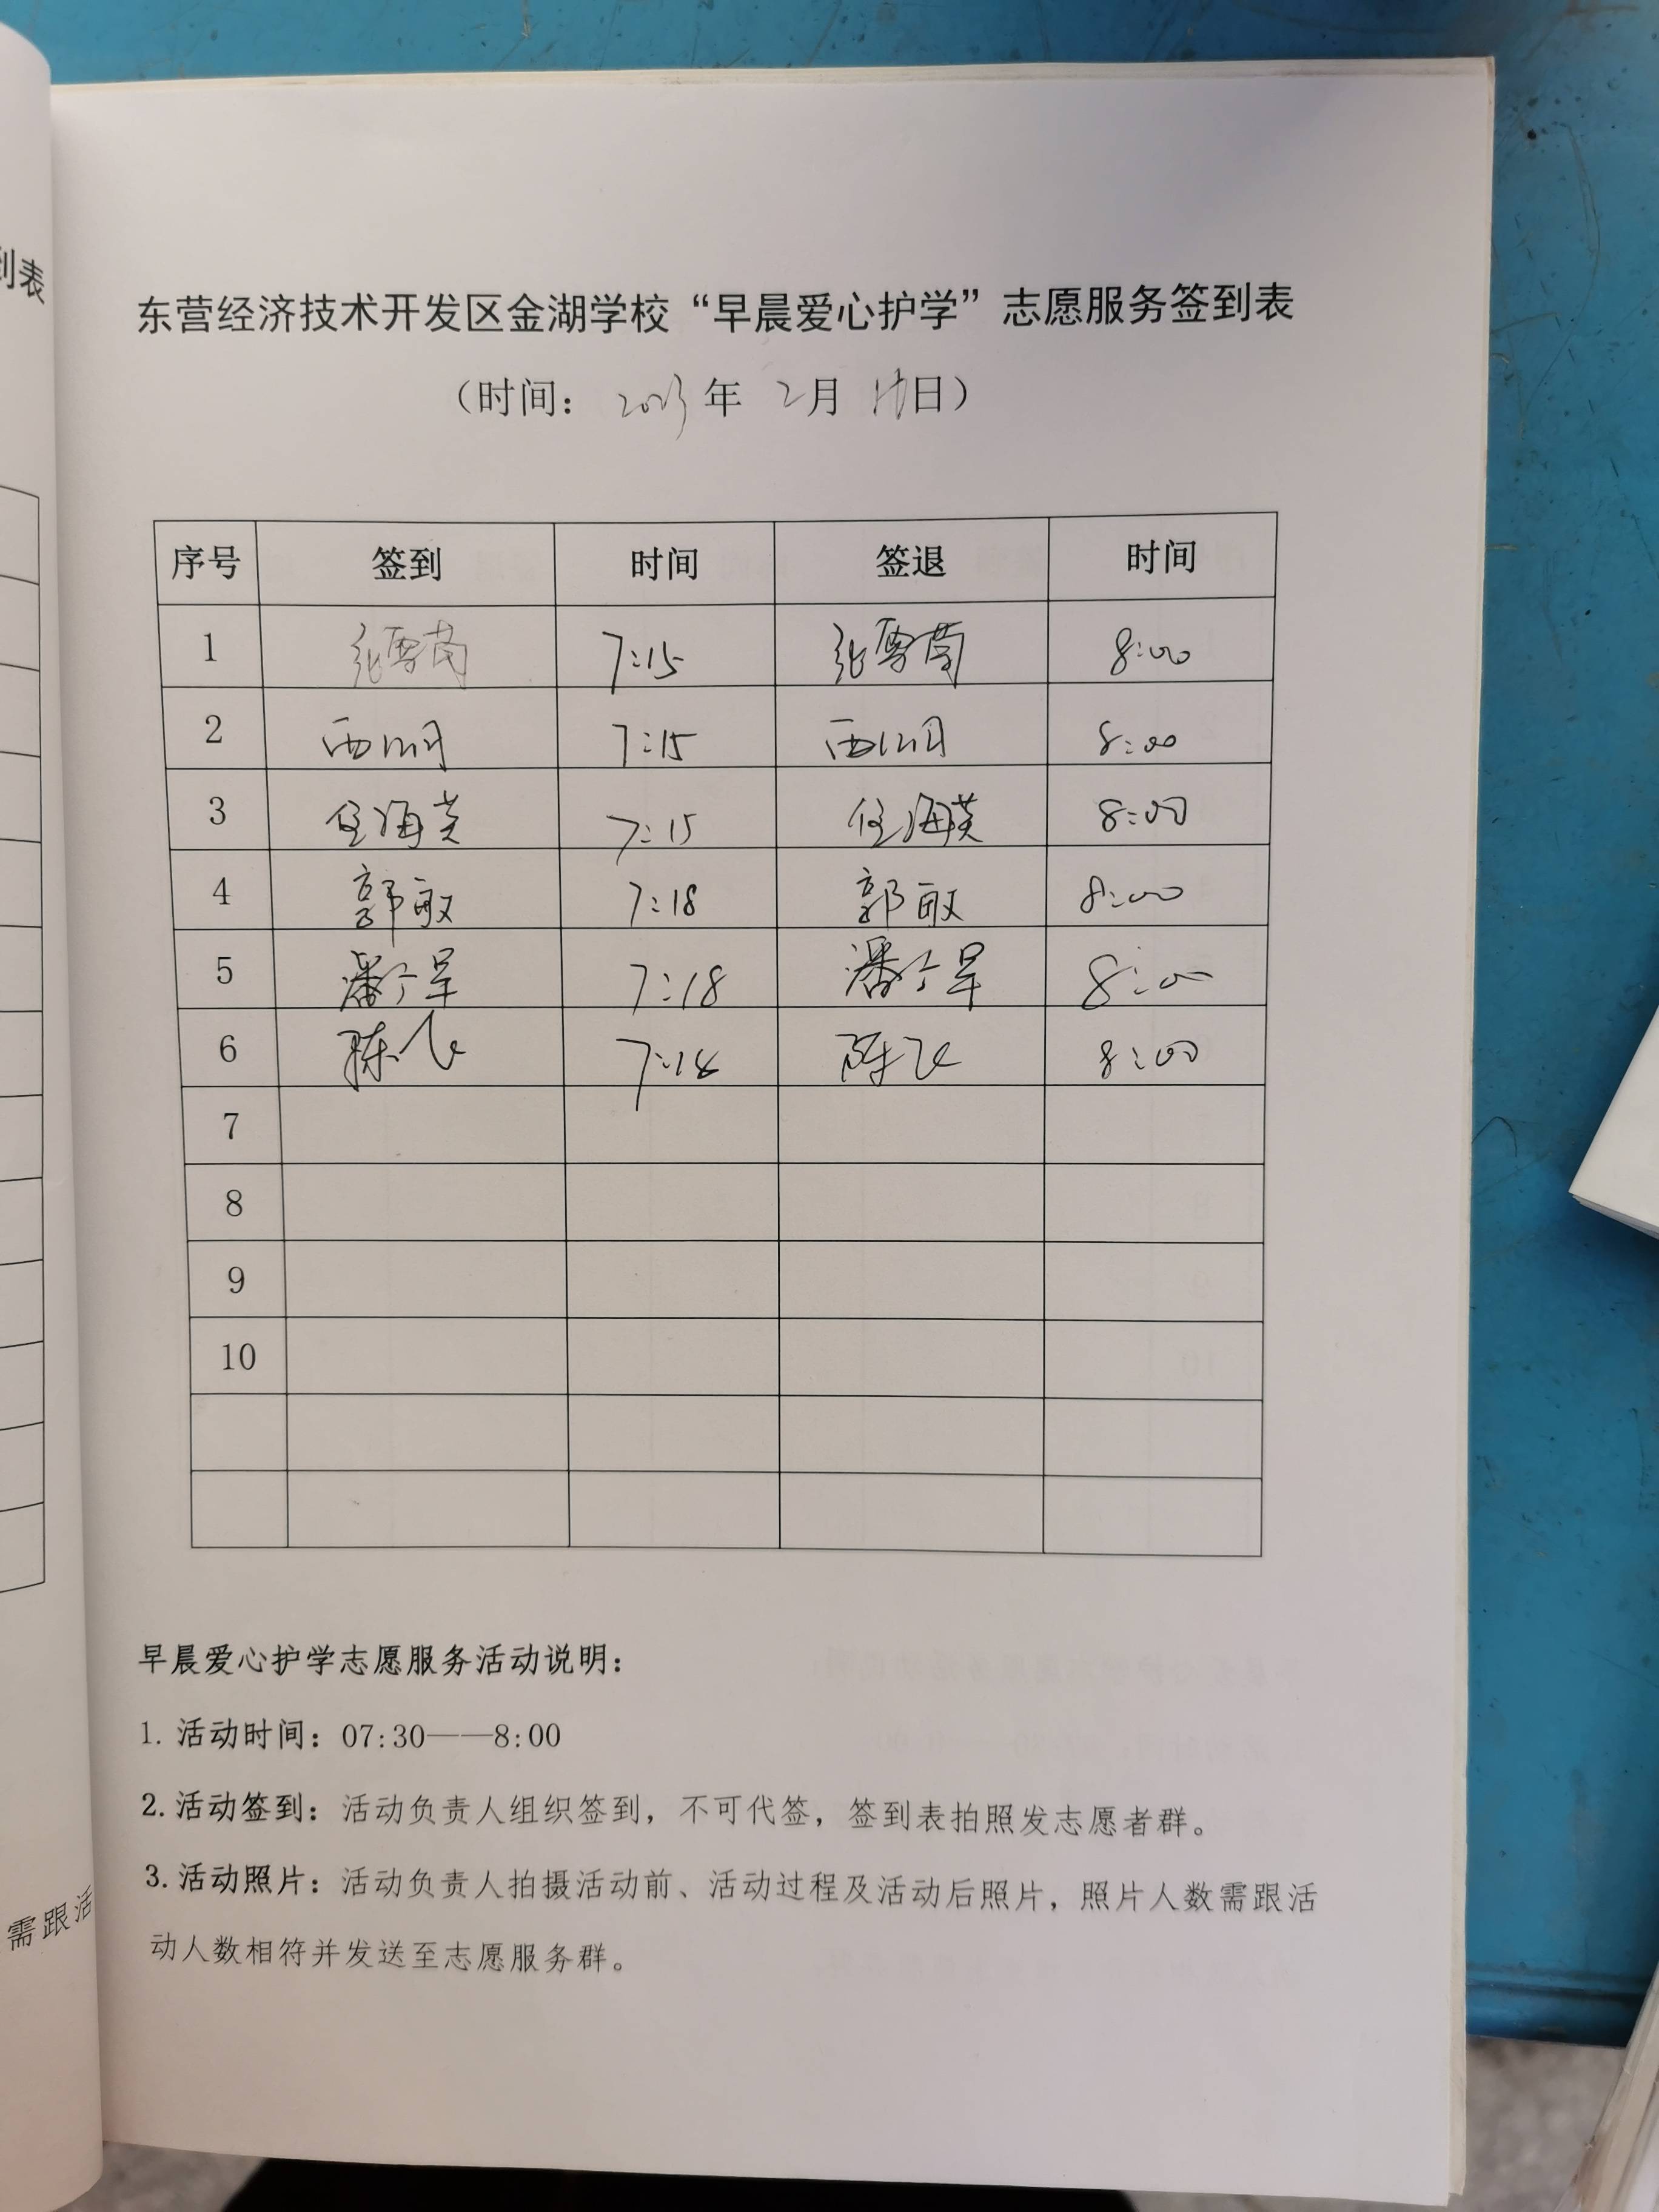 到表
东营经济技术开发区金湖学校“早晨爱心护学”志愿服务签到表
（时间： 2023 年 2月 日）
序号 签到 时间 签退 时间
1 张雪茵 7:15 张雪茵 8:00
2 7:15 8:00
3 任海英 7:15 任海英 8:00
4 郭敏 7:18 郭敏 8:00
5 潘 7:18 潘 8:00
6 陈飞 7:18 陈飞 8:00
7
8
9
10
早晨爱心护学志愿服务活动说明：
1. 活动时间：07:30——8:00
2. 活动签到：活动负责人组织签到，不可代签，签到表拍照发志愿者群。
3. 活动照片：活动负责人拍摄活动前、活动过程及活动后照片，照片人数需跟活
动人数相符并发送至志愿服务群。
需跟活